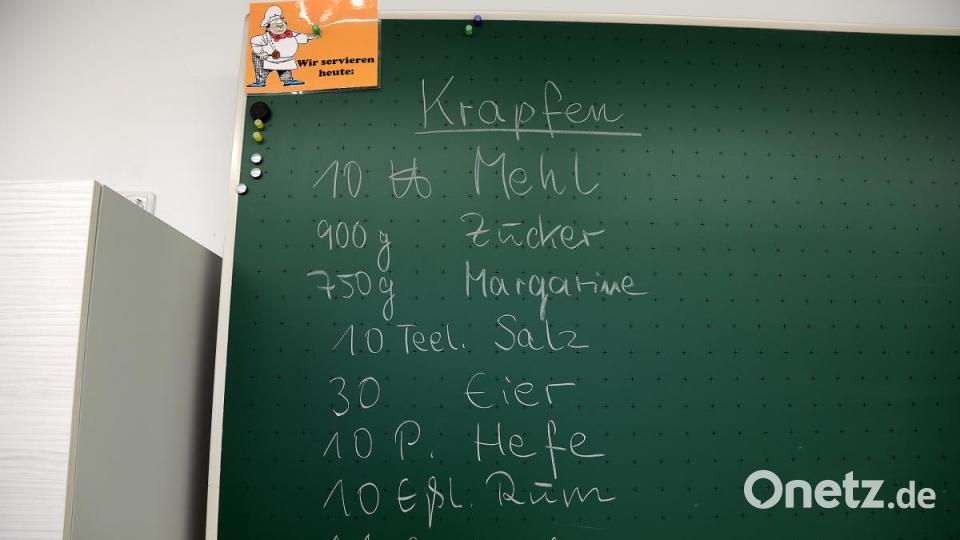 Wir servieren
heute:
Krapfen
10 ℔ Mehl
900 g Zucker
750 g Margarine
10 Teel. Salz
30 Eier
10 P. Hefe
10 Eßl. Rum
Onetz.de